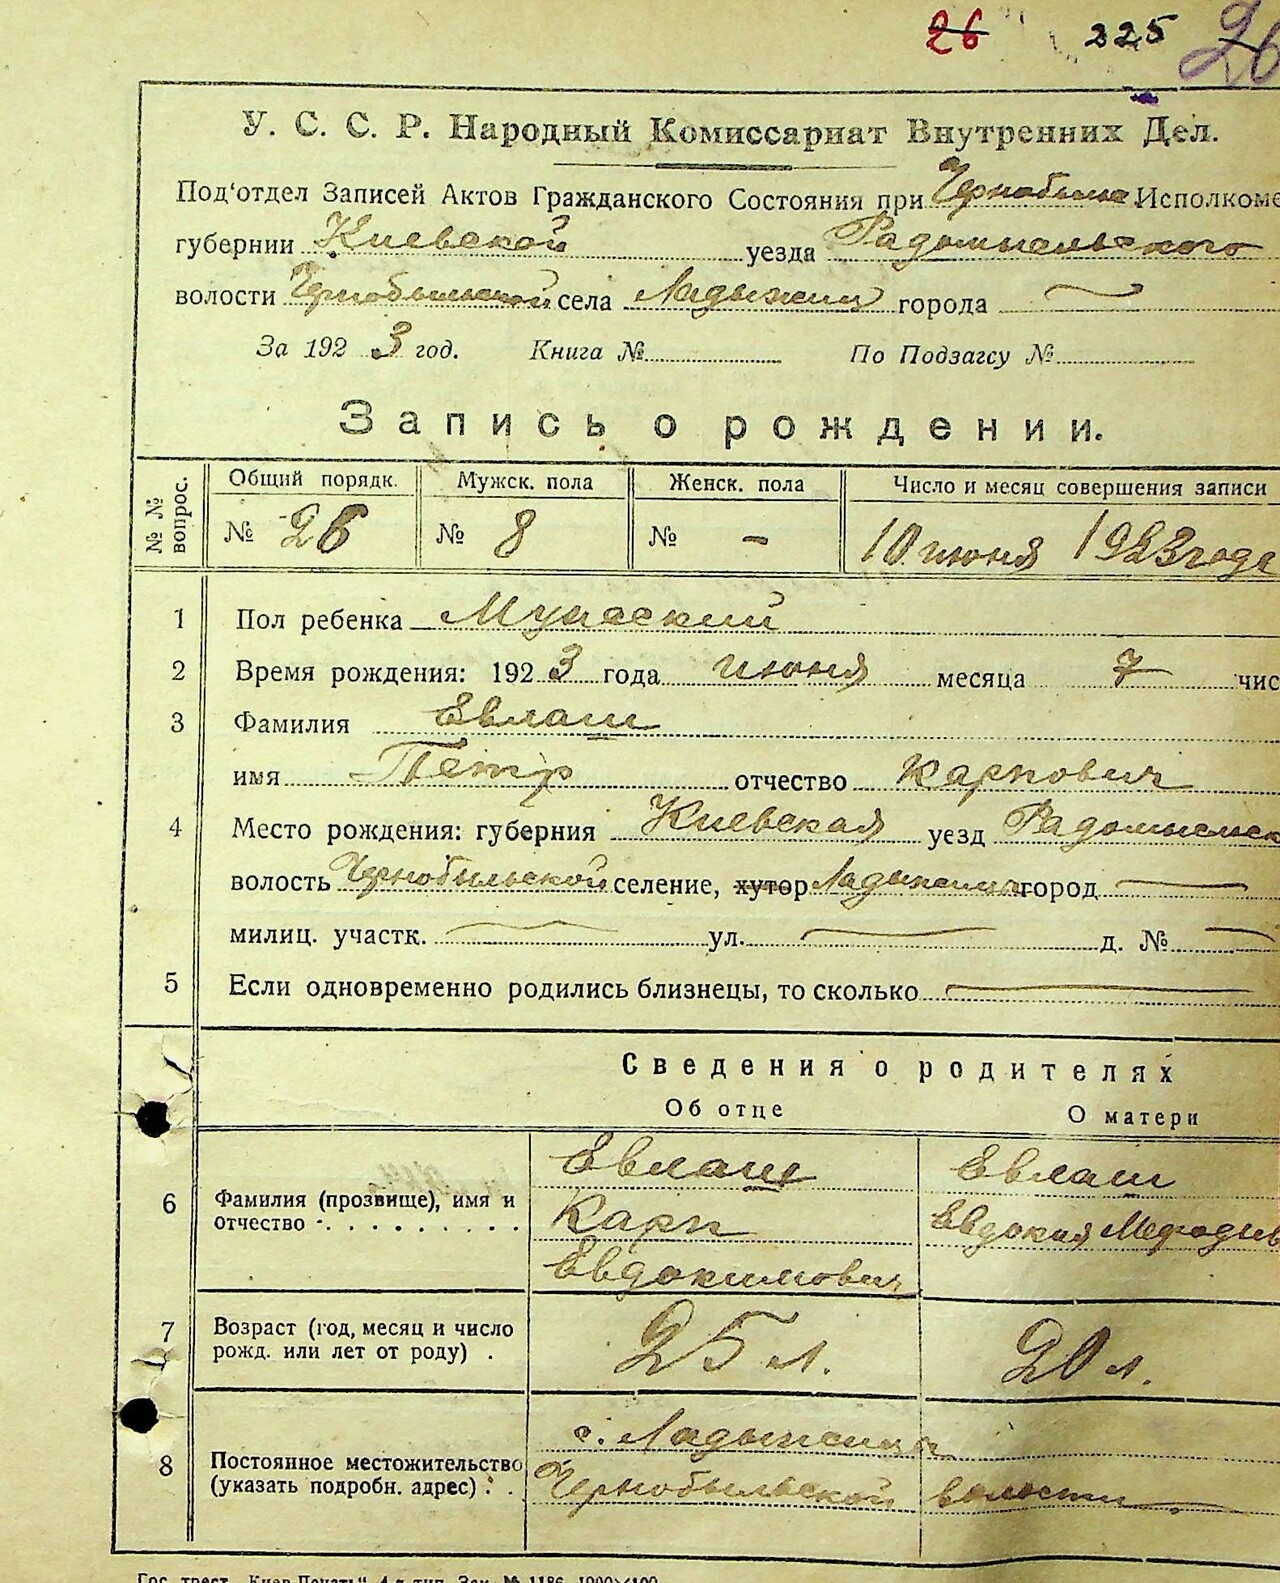 26 225 26
У. С. С. Р. Народный Комиссариат Внутренних Дел.
Под'отдел Записей Актов Гражданского Состояния при Чернобыльс. Исполкоме
губернии Киевской уезда Радомысльского
волости Чернобыльской села Ладыжичи города —
За 1923 год. Книга № По Подзагсу №
Запись о рождении.
№№ вопрос. Общий порядк. Мужск. пола Женск. пола Число и месяц совершения записи
№ 26 № 8 № - 10 июня 1923 года
1 Пол ребенка Мужеский
2 Время рождения: 1923 года июня месяца 7 чис
3 Фамилия Евлаш
имя Петр отчество Карпович
4 Место рождения: губерния Киевская уезд Радомысльск
волость Чернобыльской селение, хутор Ладыжичи город —
милиц. участк. — ул. — д. № —
5 Если одновременно родились близнецы, то сколько —
Сведения о родителях
Об отце О матери
6 Фамилия (прозвище), имя и отчество Евлаш Евлаш
Карп Евдокия Мефодиев
Евдокимович
7 Возраст (год, месяц и число рожд. или лет от роду) . 25 л. 20 л.
8 Постоянное местожительство (указать подробн. адрес) . с. Ладыжичи
Чернобыльской волости
Гос. трест „Киев-Печать“ 4-я тип. Зак. № 1186